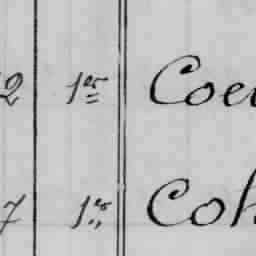 2 1er Coeu
7 1er Coh